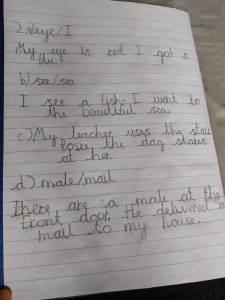 2.a)eye/I
My eye is red. I got a
flu
b) see/sea
I see a fish. I went to
the beautiful sea.
c) My teacher says the
the dog stares
at her.
d) male/mail
There are a male at the
front door. He delivered a
mail to my house.